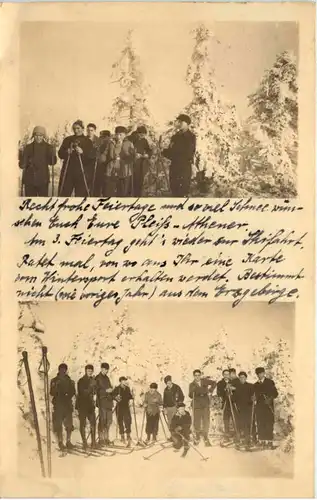 Recht frohe Feiertage und so viel Schnee wün-
schen Euch Eure Pleiß-Athener.
Am 3. Feiertag geht's wieder zur Skifahrt.
Ratet mal, von wo aus Ihr eine Karte
vom Wintersport erhalten werdet. Bestimmt
nicht (wie voriges Jahr) aus dem Erzgebirge.